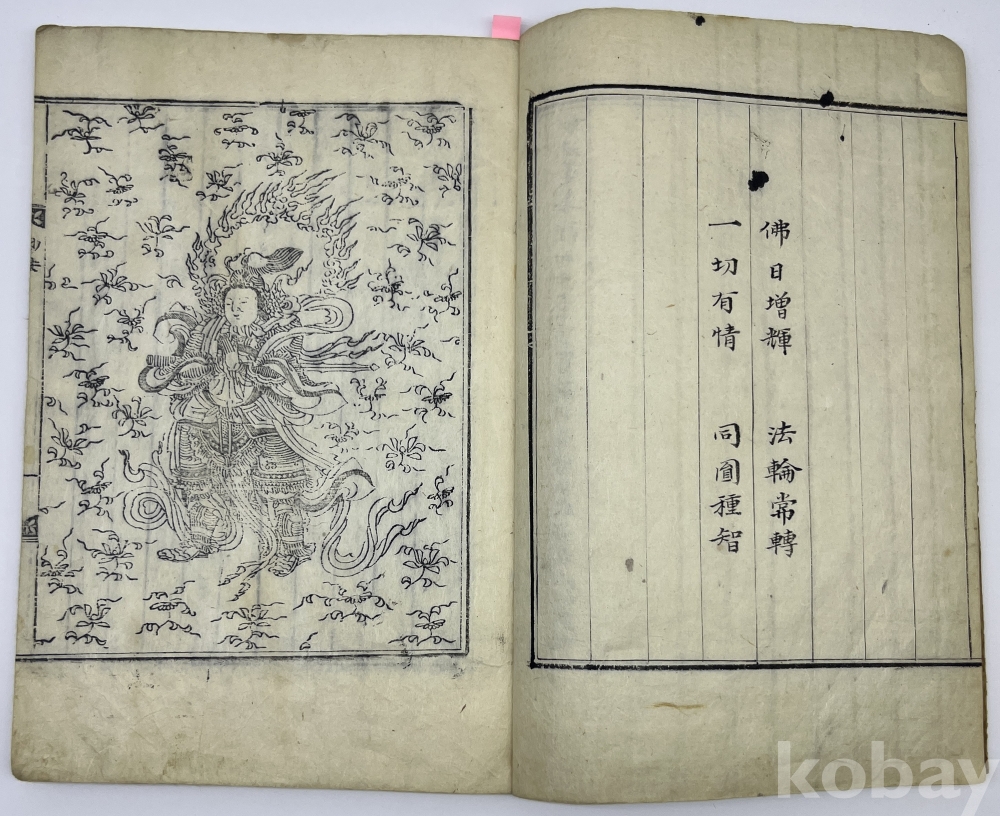 佛日增輝 法輪常轉
一切有情 同圓種智
kobay